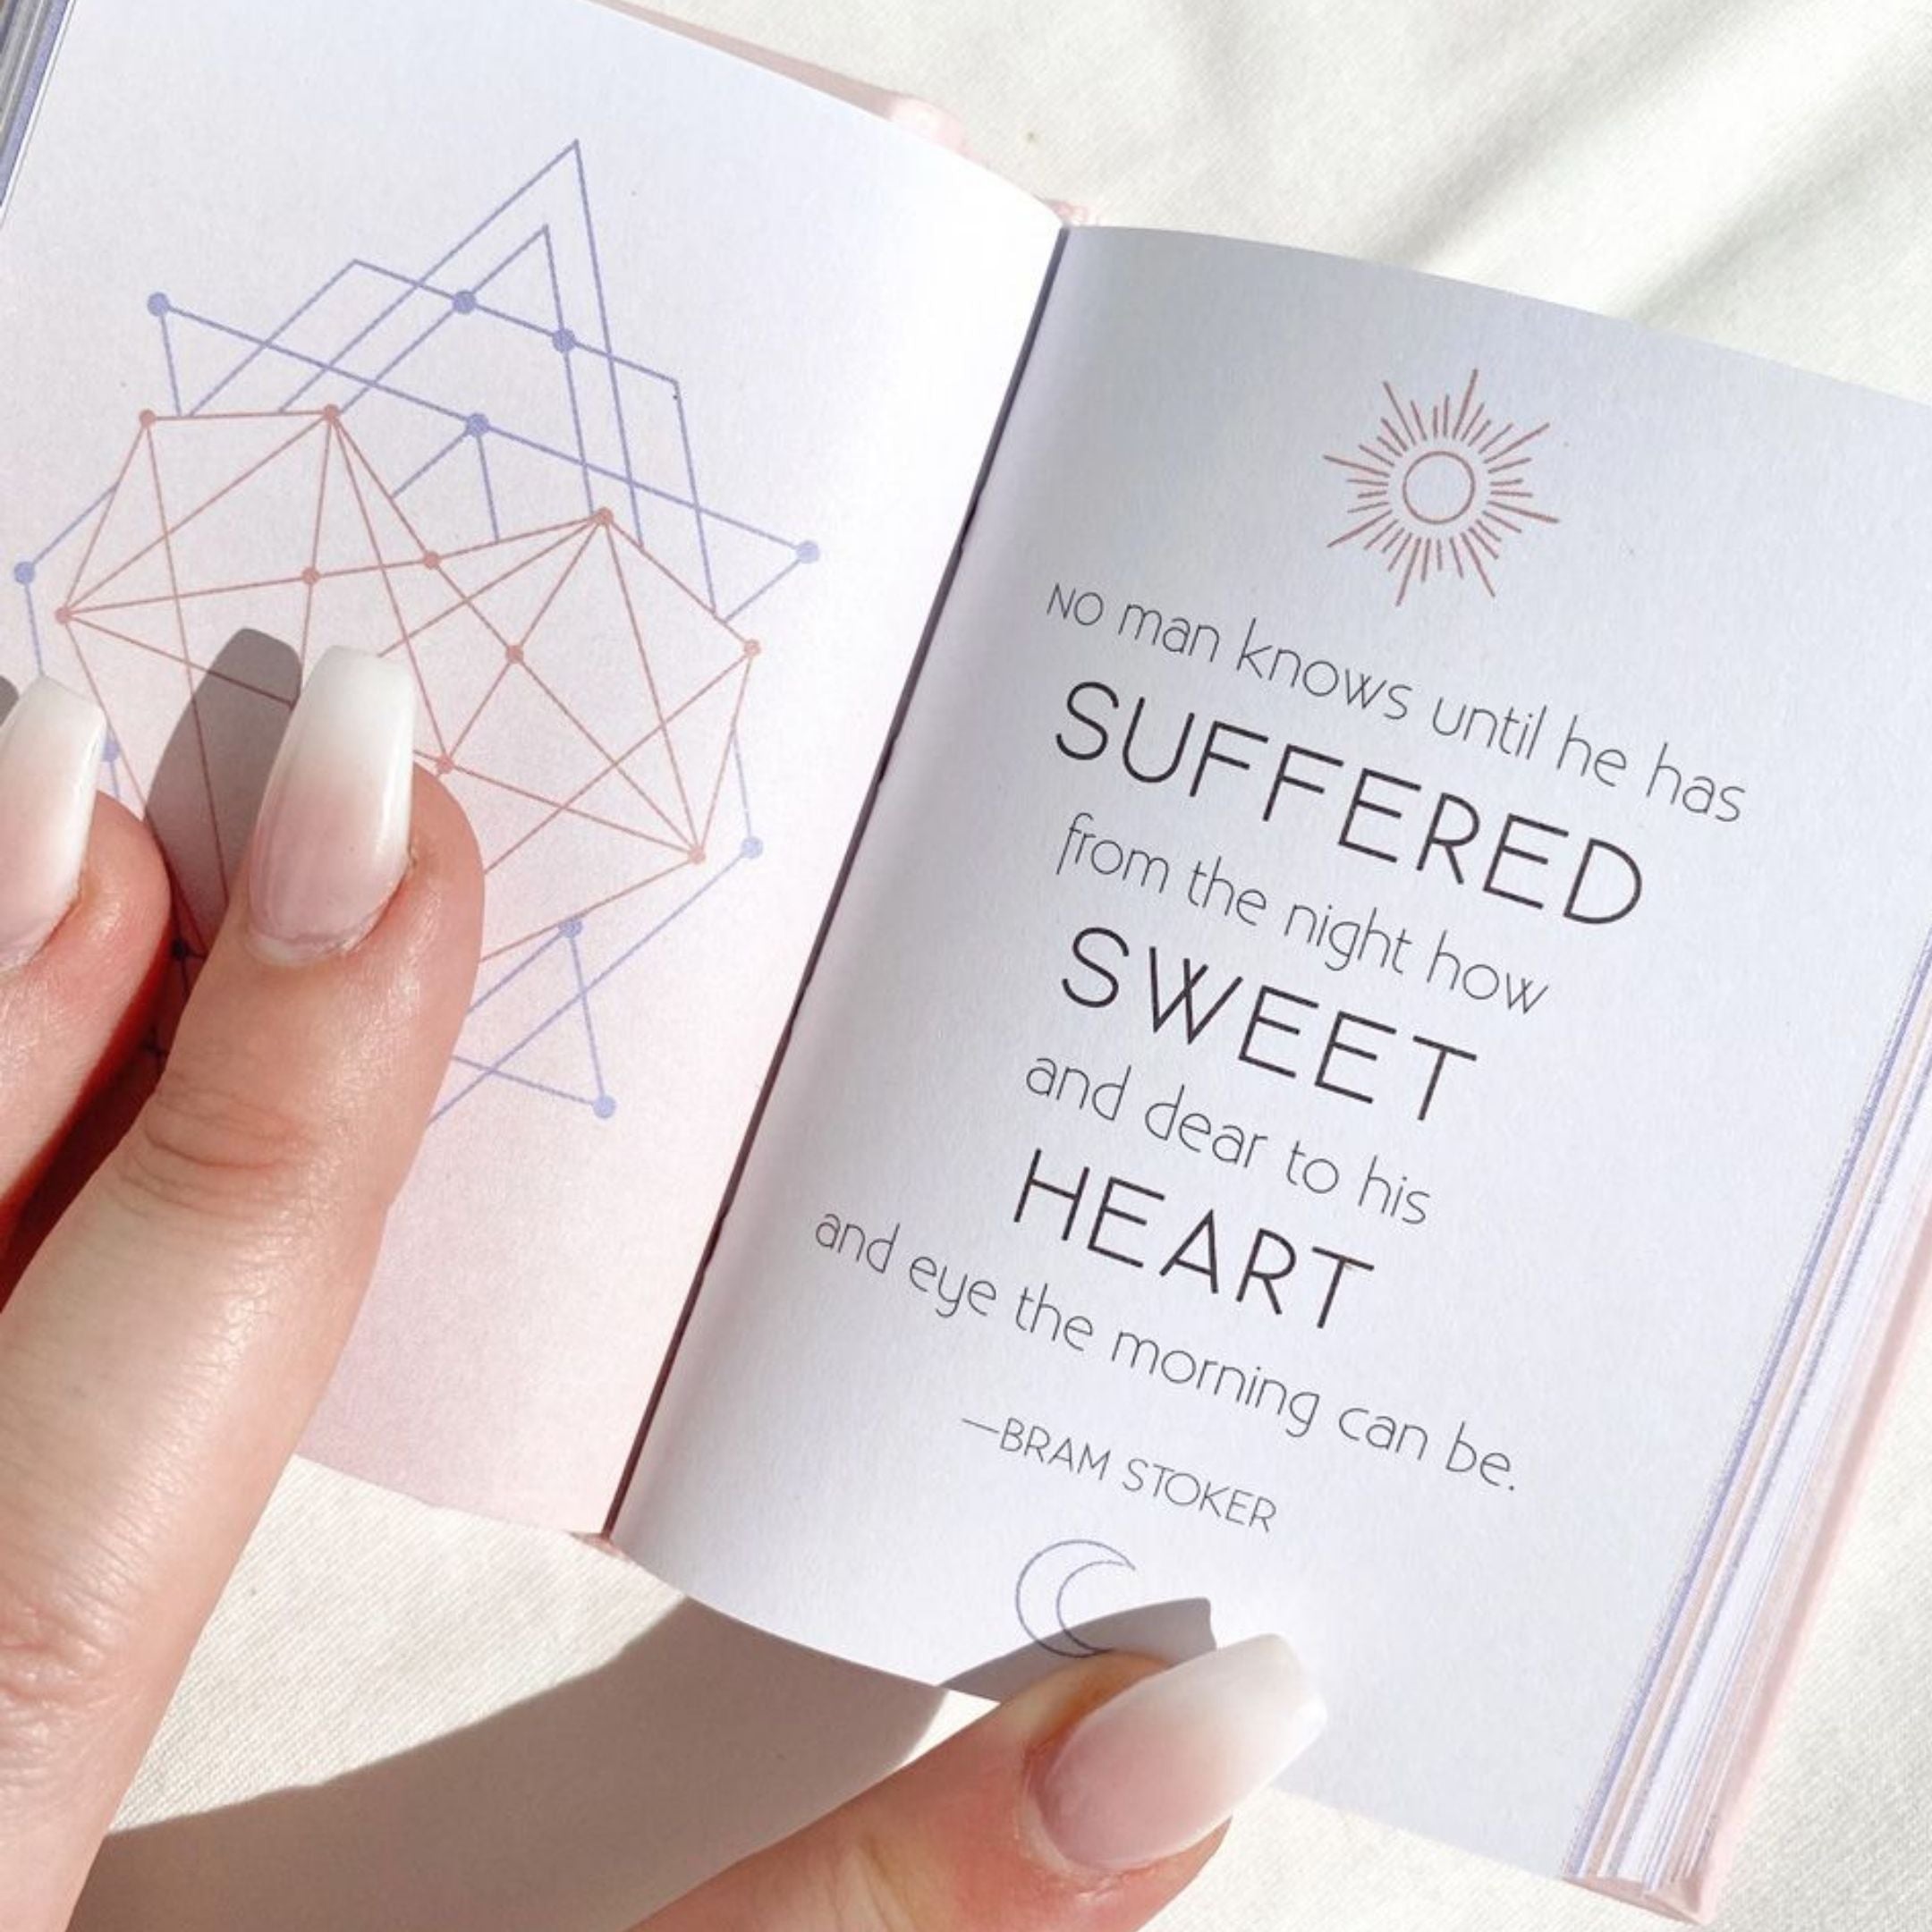 NO man knows until he has
SUFFERED
from the night how
SWEET
and dear to his
HEART
and eye the morning can be.
—BRAM STOKER